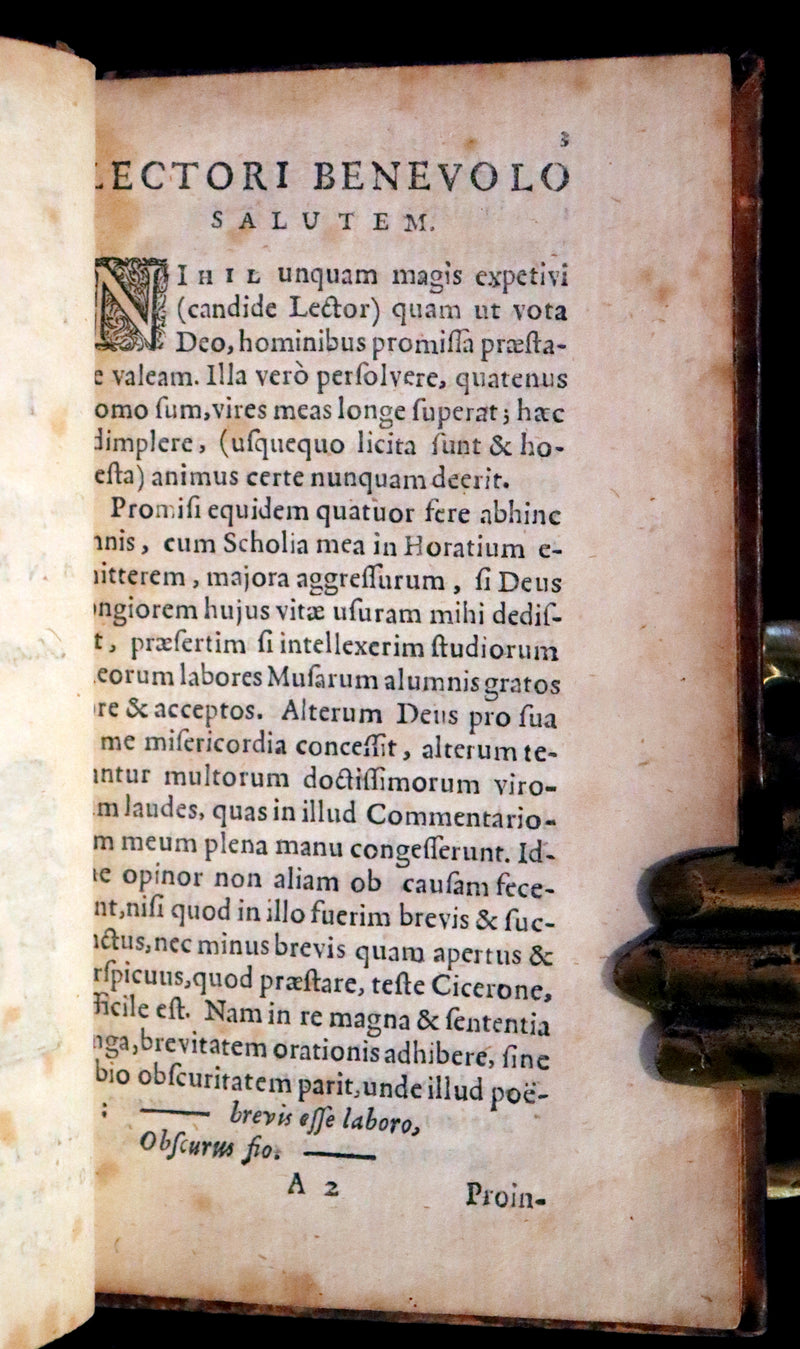 3
LECTORI BENEVOLO
SALUTEM.
NIHIL unquam magis expetivi
(candide Lector) quam ut vota
Deo, hominibus promiſſa præſta-
e valeam. Illa verò perſolvere, quatenus
omo ſum, vires meas longe ſuperat; hæc
dimplere, (uſquequo licita ſunt & ho-
eſta) animus certe nunquam deerit.
Promiſi equidem quatuor fere abhinc
nnis, cum Scholia mea in Horatium e-
itterem, majora aggreſſurum, ſi Deus
ongiorem hujus vitæ uſuram mihi dediſ-
t, præſertim ſi intellexerim ſtudiorum
eorum labores Muſarum alumnis gratos
re & acceptos. Alterum Deus pro ſua
me miſericordia conceſſit, alterum te-
antur multorum doctiſſimorum viro-
m laudes, quas in illud Commentario-
m meum plena manu congeſſerunt. Id-
e opinor non aliam ob cauſam fece-
nt, niſi quod in illo fuerim brevis & ſuc-
nctus, nec minus brevis quam apertus &
rſpicuus, quod præſtare, teſte Cicerone,
ficile eſt. Nam in re magna & ſententia
nga, brevitatem orationis adhibere, ſine
bio obſcuritatem parit, unde illud poë-
: —— brevis eſſe laboro,
Obſcurus fio. ——
A 2 Proin-